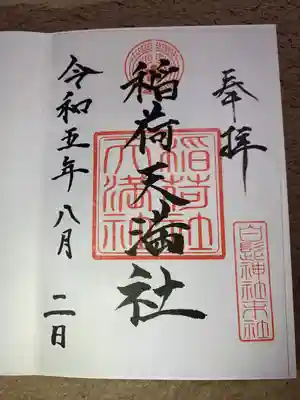 奉拝
稲荷天満社
令和五年八月二日
稲荷社
天満社
白髭神社末社